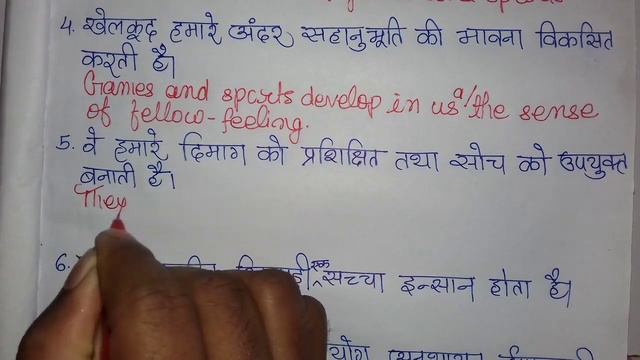 4. खेलकूद हमारे अंदर सहानुभूति की भावना विकसित
करती है।
Games and sports develop in us a/the sense
of fellow-feeling.
5. वे हमारे दिमाग को प्रशिक्षित तथा सोच को उपयुक्त
बनाती है।
They
6. एक सच्चा इन्सान होता है।